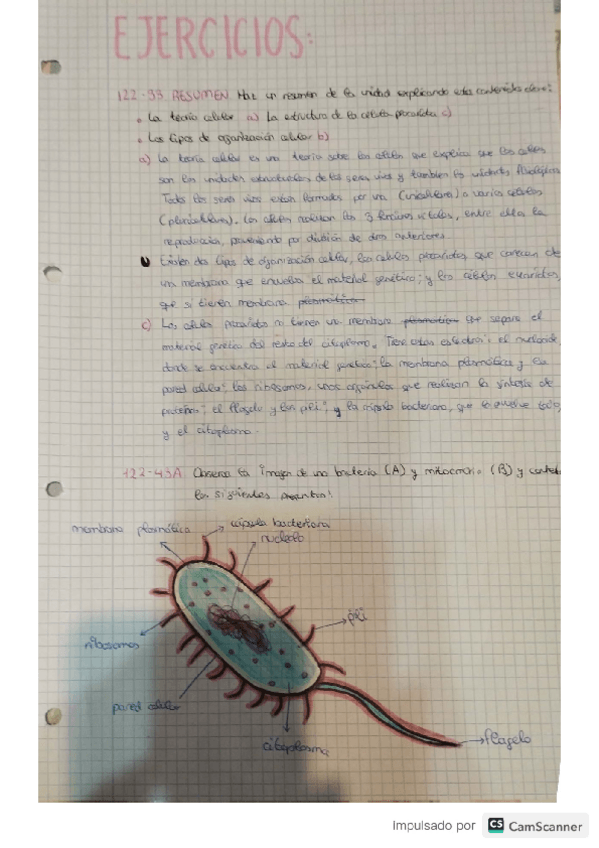 EJERCICIOS:
122-33 RESUMEN Haz un resumen de la unidad explicando estos contenidos clave:
• La teoría celular a) La estructura de la célula procariota c)
• Los tipos de organización celular b)
a) La teoría celular es una teoría sobre las células que explica que las células
son las unidades estructurales de los seres vivos y también las unidades fisiológicas.
Todos los seres vivos están formados por una (unicelulares) o varias células
(pluricelulares). Las células realizan las 3 funciones vitales, entre ellas la
reproducción, por división de otras anteriores.
b) Existen dos tipos de organización celular, las células procariotas que carecen de
una membrana que envuelva el material genético; y las células eucariotas,
que si tienen membrana plasmática
c) Las células procariotas no tienen una membrana plasmática que separe el
material genético del resto del citoplasma. Tiene estructuras: el nucleoide,
donde se encuentra el material genético; la membrana plasmática y la
pared celular; los ribosomas, unos orgánulos que realizan la síntesis de
proteínas; el flagelo y los pili; y la cápsula bacteriana, que lo envuelve todo,
y el citoplasma.
122-43A Observa la imagen de una bacteria (A) y (B) y
las siguientes preguntas:
membrana plasmática
cápsula bacteriana
nucleolo
pili
ribosomas
pared celular
citoplasma
flagelo
Impulsado por CS CamScanner